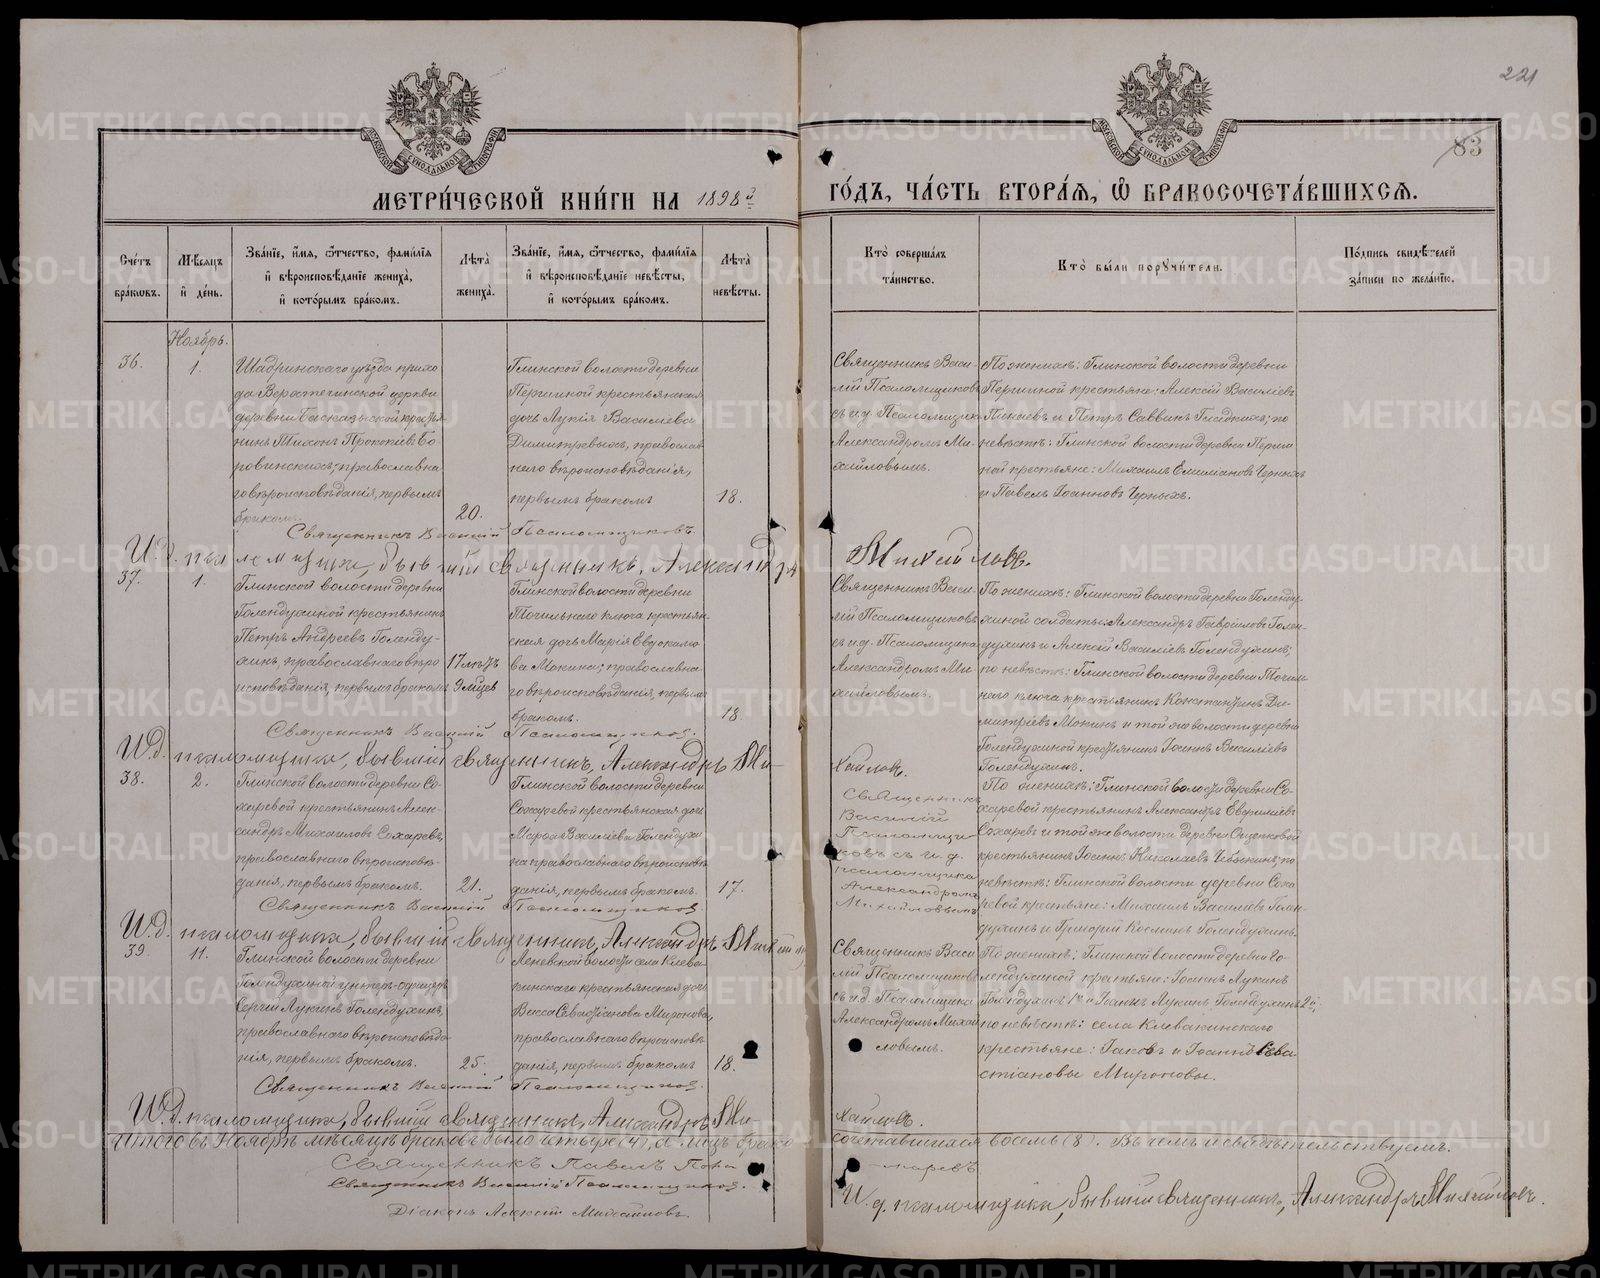 221
83
МЕТРИ́ЧЕСКОЙ КНИ́ГИ НА 1898й
ГО́ДЪ, ЧА́СТЬ ВТОРА́Я, Ѿ БРАКОСОЧЕТА́ВШИХСЯ.
Сче́тъ бра́ковъ.
Мѣ́сяцъ и҆ де́нь.
Зва́нїе, и҆́мя, ѻ҆́тчество, фами́лїя и҆ вѣроисповѣ́данїе жениха̀, и҆ кото́рымъ бра́комъ.
Лѣ́та жениха̀.
Зва́нїе, и҆́мя, ѻ҆́тчество, фами́лїя и҆ вѣроисповѣ́данїе невѣ́сты, и҆ кото́рымъ бра́комъ.
Лѣ́та невѣ́сты.
Кто̀ соверша́лъ та́инство.
Кто̀ бы́ли порꙋчи́тели.
По́дпись свидѣ́телей за́писи по жела́нїю.
Ноябрь.
36.
1.
Шадринскаго уѣзда прихо
да Верхтечинской церкви
деревни
нинъ Прокопіевъ Бо
ровинскихъ, православна
го вѣроисповѣданія, первымъ
бракомъ
20.
Глинской волости деревни
Першиной крестьянская
дочь Лукія Васильева
православ
наго вѣроисповѣданія,
первымъ бракомъ
18.
Священникъ Васи-
лій Псаломщиковъ
съ и.д. Псаломщика
Александромъ Ми-
хайловымъ.
По женихѣ: Глинской волости деревни
Першиной крестьяне: Алексій Васильевъ
и Петръ Саввинъ Гладкихъ; по
невѣстѣ: Глинской волости деревни Перши
ной крестьяне: Михаилъ Емиліановъ Черныхъ
и Павелъ Іоанновъ Черныхъ.
Священникъ Василій Псаломщиковъ
И.д. псаломщика, бывшій священникъ, Александръ Михайловъ.
37.
1.
Глинской волости деревни
Голендухиной крестьянинъ
Петръ Андреевъ Голенду-
хинъ, православнаго вѣро
исповѣданія, первымъ бракомъ
17 лѣтъ
9 мѣцев
Глинской волости деревни
Точильнаго ключа крестьян
ская дочь Марія Евдокимо
ва Мокина; православна
го вѣроисповѣданія, первымъ
бракомъ.
18.
Священникъ Васи-
лій Псаломщиковъ
съ и.д. Псаломщика
Александромъ Ми-
хайловымъ.
По женихѣ: Глинской волости деревни Голенду
хиной солдаты: Александръ Гавріиловъ Голен-
духинъ и Алексій Васильевъ Голендухинъ;
по невѣстѣ: Глинской волости деревни Точиль
наго ключа крестьянинъ Константинъ Ди-
митріевъ Мокинъ и той же волости деревни
Голендухиной крестьянинъ Іоаннъ Васильевъ
Голендухинъ.
Священникъ Василій Псаломщиковъ.
И.д. псаломщика, бывшій священникъ, Александръ Ми-
хайловъ.
38.
2.
Глинской волости деревни Со
харевой крестьянинъ Алек-
сандръ Михаиловъ Сохаревъ,
православнаго вѣроисповѣ-
данія, первымъ бракомъ.
21.
Глинской волости деревни
Сохаревой крестьянская дочь
Марѳа Васильева Голендухи
на православнаго вѣроисповѣ
данія, первымъ бракомъ.
17.
Священникъ
Василій
Псаломщи
ковъ съ и.д.
псаломщика
Александромъ
Михайловымъ
По женихѣ: Глинской волости деревни Со
харевой крестьянинъ Александръ
Сохаревъ и той же волости деревни Ощепковой
крестьянинъ Іоаннъ Николаевъ Чебыкинъ; по
невѣстѣ: Глинской волости деревни Соха
ревой крестьяне: Михаилъ Васильевъ Голен-
духинъ и Григорій Косминъ Голендухинъ.
Священникъ Василій Псаломщиковъ
И.д. псаломщика, бывшій священникъ, Александръ Михайловъ
39.
11.
Глинской волости деревни
Голендухиной унтеръ-офицеръ
Сергій Лукинъ Голендухинъ,
православнаго вѣроисповѣда
нія, первымъ бракомъ.
25.
Леневской волости села Клева
кинскаго крестьянская дочь
Васса Севастіанова Миронова,
православнаго вѣроисповѣ
данія, первымъ бракомъ
18.
Священникъ Васи
лій Псаломщиковъ
съ и.д. Псаломщика
Александромъ Михай
ловымъ.
По женихѣ: Глинской волости деревни Го-
лендухиной крестьяне: Іоаннъ Лукинъ
Голендухинъ 1й и Іоаннъ Лукинъ Голендухинъ 2й;
по невѣстѣ: села Клевакинскаго
крестьяне: Іаковъ и Іоаннъ Сева
стіановы Мироновы.
Священникъ Василій Псаломщиковъ.
И.д. псаломщика, бывшій священникъ, Александръ Ми-
хайловъ.
Итого въ Ноябрѣ мѣсяцѣ браковъ было четыре (4), а лицъ брако
сочетавшихся восемь (8). Въ семъ и свидѣтельствуемъ.
Священникъ Павелъ Пона
маревъ
Священникъ Василій Псаломщиковъ.
Діаконъ Алексій Михайловъ.
И.д. псаломщика, бывшій священникъ, Александръ Михайловъ.
METRIKI.GASO-URAL.RU